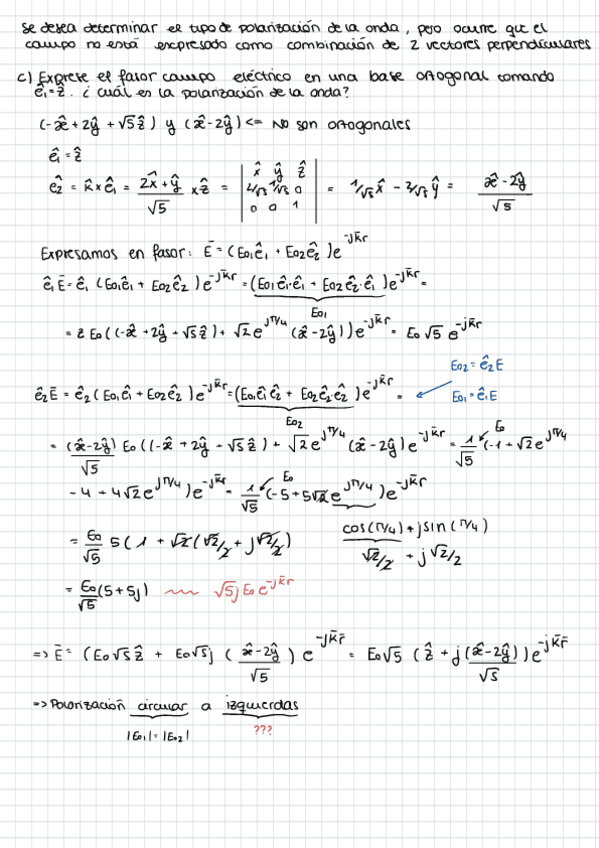 Se desea determinar el tipo de polarización de la onda, pero ocurre que el
campo no está expresado como combinación de 2 vectores perpendiculares
c) Exprese el fasor campo eléctrico en una base ortogonal tomando
ê₁=ẑ. ¿cuál es la polarización de la onda?
(-x̂ + 2ŷ + √5ẑ) y (x̂-2ŷ) <= No son ortogonales
ê₁ = ẑ
ê₂ = k̂ × ê₁ = (2x̂+ŷ)/√5 × ẑ = | x̂ ŷ ẑ ; 2/√5 1/√5 0 ; 0 0 1 | = 1/√5 x̂ - 2/√5 ŷ = (x̂-2ŷ)/√5
Expresamos en fasor: Ē = (E01ê₁ + E02ê₂)e^-jk̄r
ê₁Ē = ê₁ (E01ê₁ + E02ê₂)e^-jk̄r = (E01ê₁·ê₁ + E02ê₂·ê₁)e^-jk̄r =
E01
= ẑ E0((-x̂ + 2ŷ + √5ẑ) + √2e^jπ/4 (x̂-2ŷ))e^-jk̄r = E0√5 e^-jk̄r
E02 = ê₂E
ê₂Ē = ê₂(E01ê₁ + E02ê₂)e^-jk̄r = (E01ê₁ê₂ + E02ê₂·ê₂)e^-jk̄r =
E01 = ê₁E
E02
= (x̂-2ŷ)/√5 E0((-x̂ + 2ŷ - √5ẑ) + √2e^jπ/4 (x̂-2ŷ)e^-jk̄r = 1/√5 E0 (-1 + √2e^jπ/4
- 4 + 4√2e^jπ/4)e^-jk̄r = 1/√5 E0 (-5 + 5√2e^jπ/4)e^-jk̄r
= E0/√5 5(1 + √2(√2/2 + j√2/2) cos(π/4) + jsin(π/4)
√2/2 + j√2/2
= E0/√5 (5 + 5j) √5jE0e^-jk̄r
=> Ē = (E0√5ẑ + E0√5j (x̂-2ŷ)/√5) e^-jk̄r̄ = E0√5 (ẑ + j(x̂-2ŷ)/√5)e^-jk̄r̄
=> Polarización circular a izquierdas
|E01| = |E02| ???